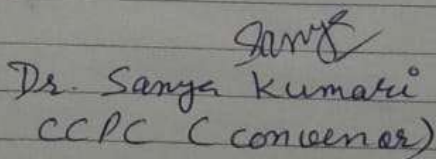 Sanya
Dr. Sanya Kumari
CCPC (convenor)